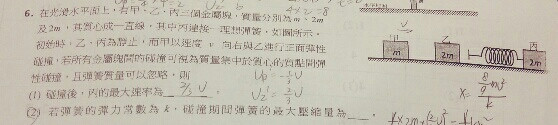 6. 在光滑水平面上,有甲、乙、丙三個金屬塊,質量分別為m、2m
及2m,其質心成一直線,其中丙連接一理想彈簧,如圖所示。
初始時,乙、丙為靜止,而甲以速度 v 向右與乙進行正面彈性
碰撞,若所有金屬塊間的碰撞可視為質量集中於質心的質點間彈
性碰撞,且彈簧質量可以忽略,則
(1) 碰撞後,丙的最大速率為 2/3 v
(2) 若彈簧的彈力常數為 k,碰撞期間彈簧的最大壓縮量為＿＿。
U₂' = 2/3 v
v
甲 乙 丙
m 2m 2m
x =
8/9 mv²
k